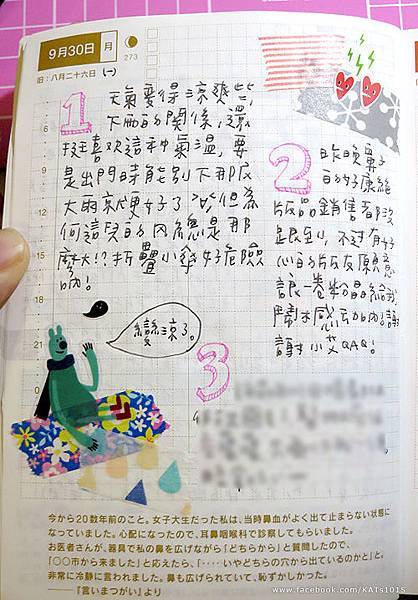 9月30日 月
273
旧：八月二十六日 (一)
1
天氣變得涼爽些,
下雨的關係,還
挺喜歡這種氣溫,要
是出門時能別下那麼
大的雨便好了，但為
何這兒的雨總是那
麼大!?折疊小傘好危險
吶!
2
昨晚票子
的好康絕
版品銷售都沒
跟到,不過有好
心的版友願意
讓一卷粉晶給我,
感動吶!謝
謝小艾QAQ!
變涼了。
3
6
9
12
15
18
21
0
今から20数年前のこと。女子大生だった私は、当時鼻血がよく出て止まらない状態に
なっていました。心配になったので、耳鼻咽喉科で診察してもらいました。
お医者さんが、器具で私の鼻を広げながら「どちらから」と質問したので、
「○○市から来ました」と応えたら、「‥‥いやどちらの穴から出ているのかと」と、
非常に冷静に言われました。鼻も広げられていて、恥ずかしかった。
──『言いまつがい』より
www.facebook.com/KATs1015